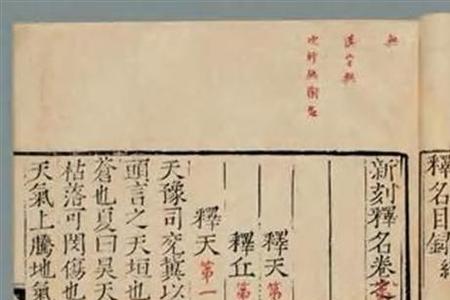 無
釋名目錄
新刻釋名卷
釋天 第
釋丘 第
釋天 第一
天豫司兗冀以
頭言之天垣也
蒼也夏曰昊天
枯落可閔傷也
天氣上騰地氣